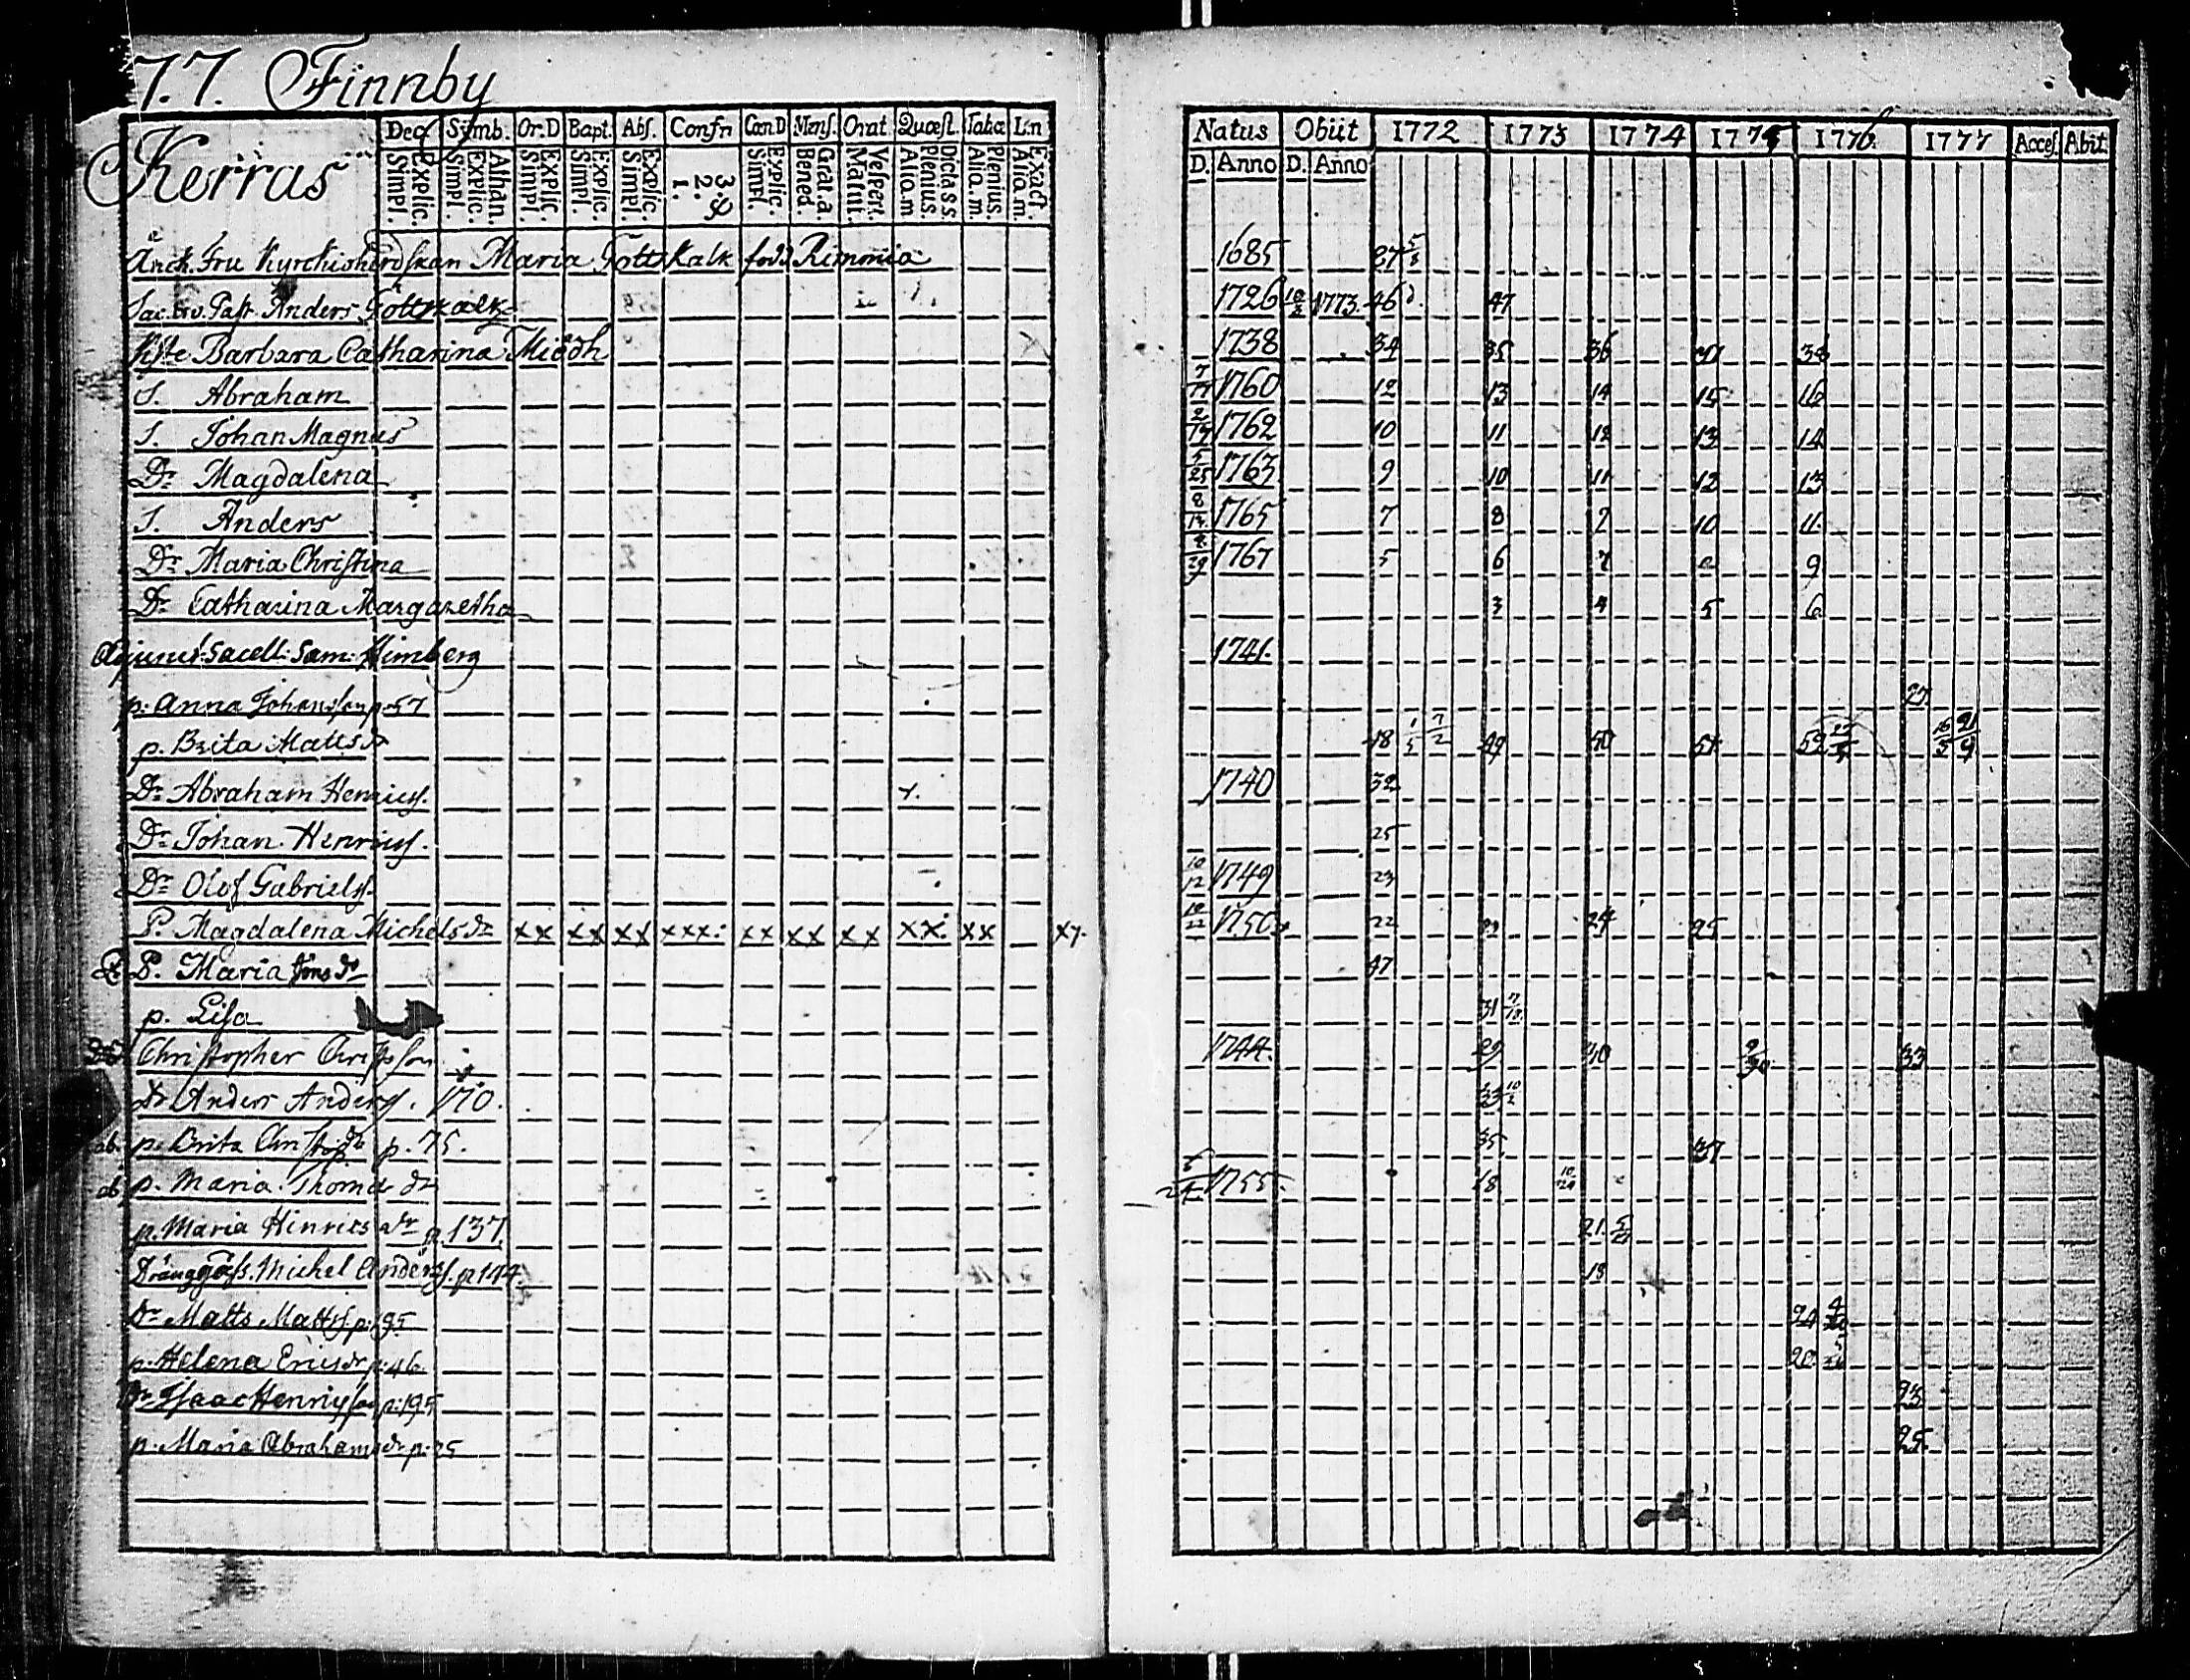 7.7. Finnby
Kerras
Dec. Symb. Or.D Bapt. Abs. Confn Can D Mens. Orat. Quæst. Tabæ Lin
Simpl. Explic. Simpl. Explic. Athan. Simpl. Explic. Simpl. Explic. Simpl. Explic. 1. 2. 3. Simpl. Explic. Bened. Grat. a. Matut. Vespert. Alio. m Plenius. Dicta ss Alio. m. Plenius. Alio. m. Exact.
Natus Obiit 1772 1773 1774 1775 1776 1777 Acces. Abit
D. Anno D. Anno
Änck. Fru Kyrckioherdskan Maria Gottskalk född Rimmia 1685 87 5/3
Sac. Past. Anders Gottskalk 1726 1773. 46 47
Hste Barbara Catharina Miödh 1738 34 35 36 37 38
S. Abraham 7/17 1760 12 13 14 15 16
S. Johan Magnus 1762 10 11 12 13 14
Dr Magdalena 5/25 1763 9 10 11 12 13
S. Anders 1765 7 8 9 10 11
Dr Maria Christina 1767 5 6 7 8 9
Dr Catharina Margaretha 3 4 5 6
Sacell: Sam: Himberg 1741.
p. Anna Johans p. 57 27.
p. Brita Matts dr 48 49 50 51 52
Dr Abraham Henrics. 1740 32
Dr Johan Henrics. 25
Dr Olof Gabriels. 10/12 1749 23
P. Magdalena Michels dr xx xx xx xxx: xx xx xx xx: xx xy. 10/22 1750 22 23 24 25
P. Maria dr 47
p. Lisa 31 7/18
Christopher son 1744. 29 30 33
Dr Anders Anders. 170. 33 10/2
ab. p. Brita p. 75. 35 37
ab p. Maria Thomæ dr 1755. 18
p. Maria Hinrics dr p. 137. 21.
Dränggoss. Michel Anders. p 144. 13
Dr Matts Matts. p. 95 24
p. Helena Erics dr p. 46. 20.
Dr Isaac Henrics son p. 195 23
p. Maria Abrahams dr p. 25 25.